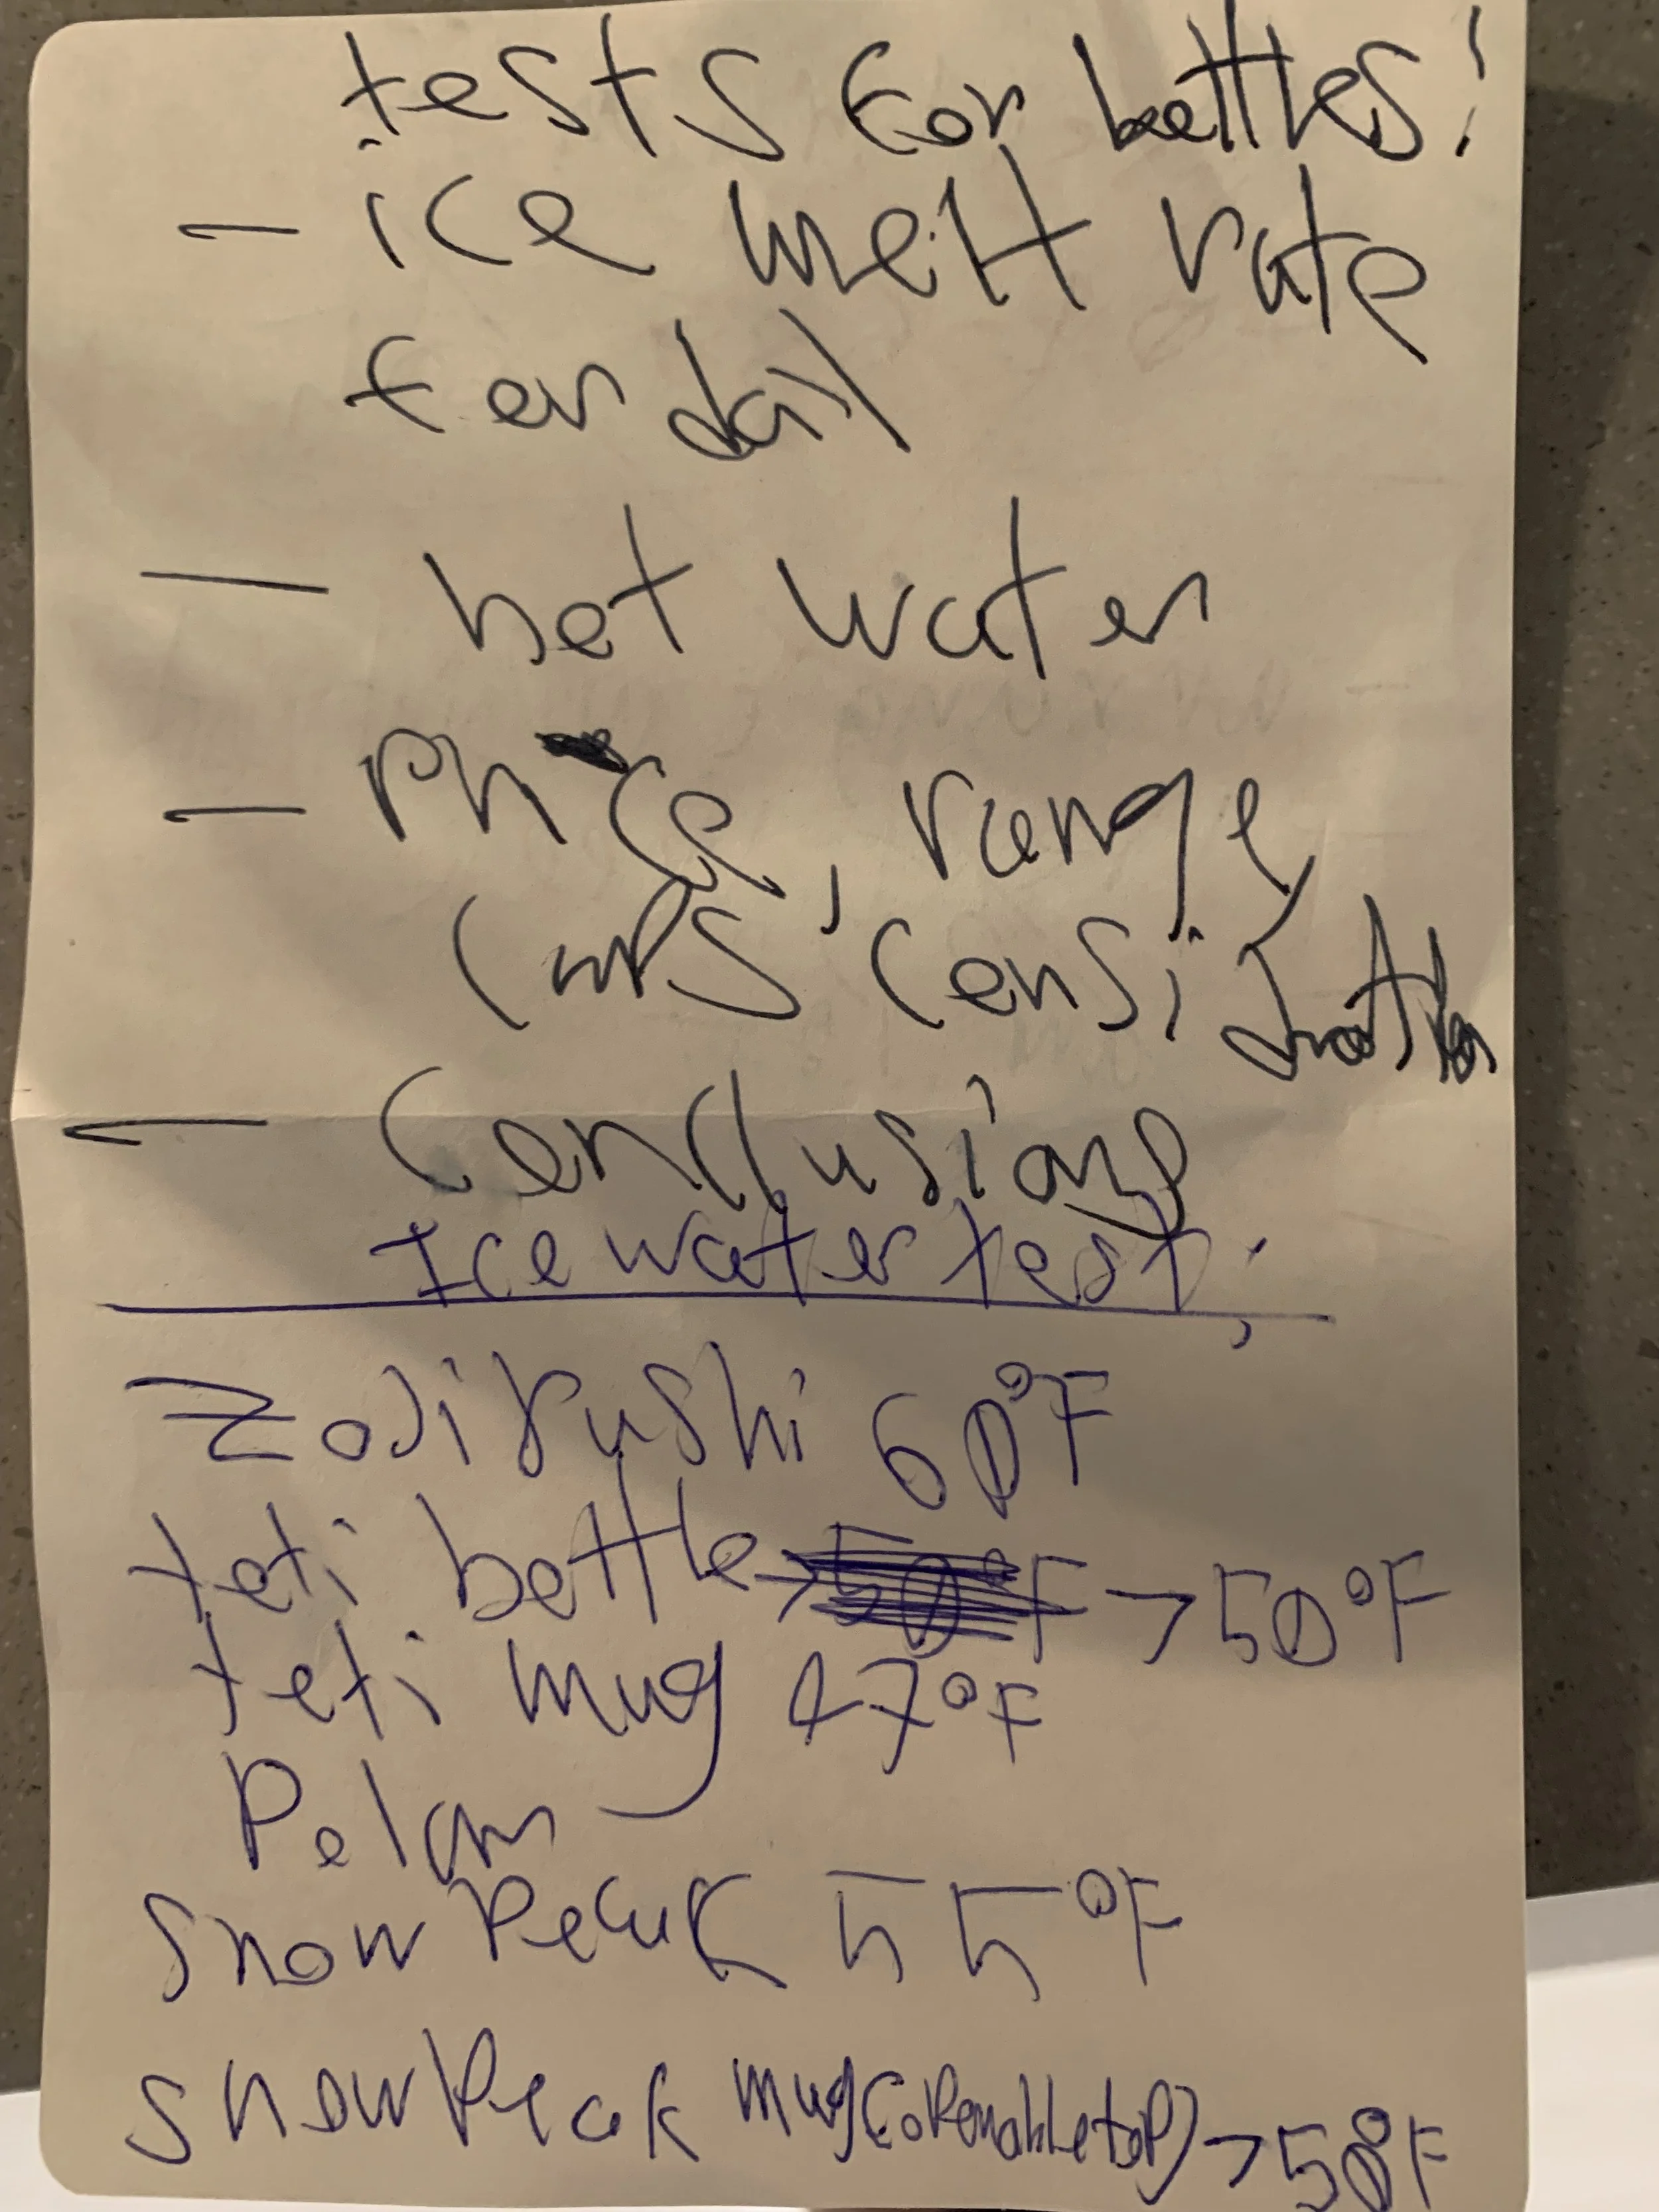 tests for bottles:
- ice melt rate
for dail
- hot water
- Price, range
cups consi
- Conclusions
Ice water test:
Zojirushi 60°F
Yeti bottle → 50°F → 50°F
Yeti mug 47°F
Polar
Snow Peak 55°F
Snow Peak mug (openable top) → 50°F